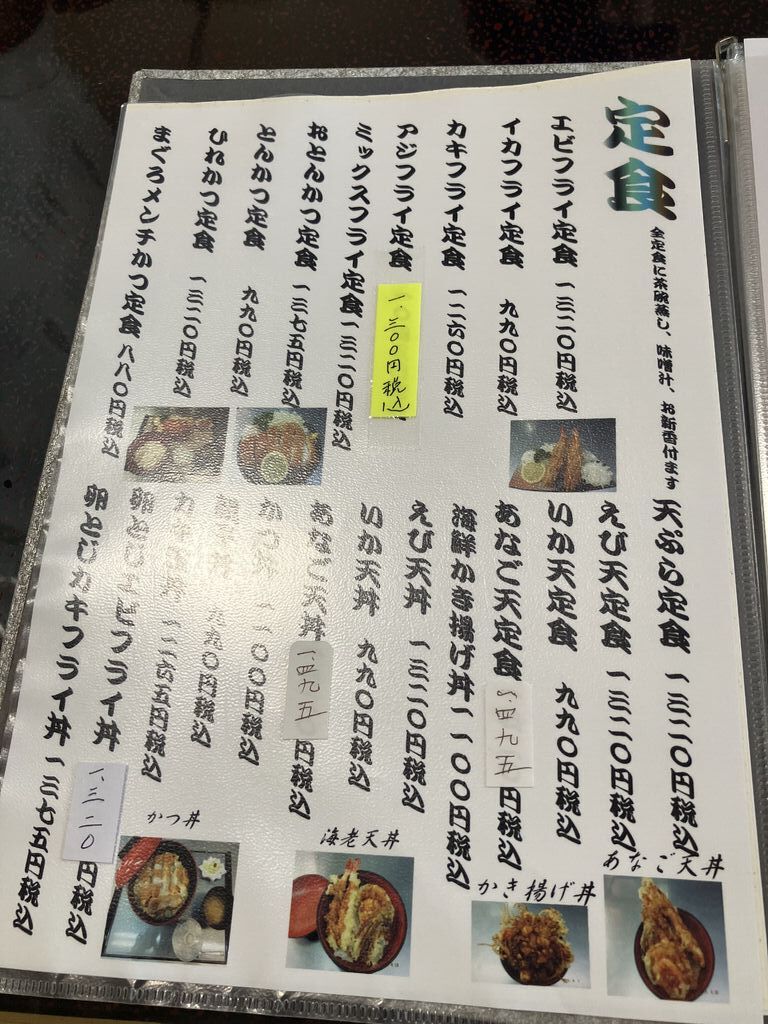 定食
全定食に茶碗蒸し、味噌汁、お新香付ます
エビフライ定食 一三二〇円税込
イカフライ定食 九九〇円税込
カキフライ定食 一二六〇円税込
アジフライ定食 一、三〇〇円税込
ミックスフライ定食一三二〇円税込
おとんかつ定食 一三七五円税込
とんかつ定食 九九〇円税込
ひれかつ定食 一三二〇円税込
まぐろメンチかつ定食 八八〇円税込
天ぷら定食 一三二〇円税込
えび天定食 一三二〇円税込
いか天定食 九九〇円税込
あなご天定食 一、四九五円税込
海鮮かき揚げ丼一一〇〇円税込
えび天丼 一三二〇円税込
いか天丼 九九〇円税込
あなご天丼 一、四九五円税込
かつ丼 一一〇〇円税込
九九〇円税込
一二六五円税込
卵とじエビフライ丼 一、三二〇円税込
卵とじカキフライ丼 一三七五円税込
あなご天丼
かき揚げ丼
海老天丼
かつ丼